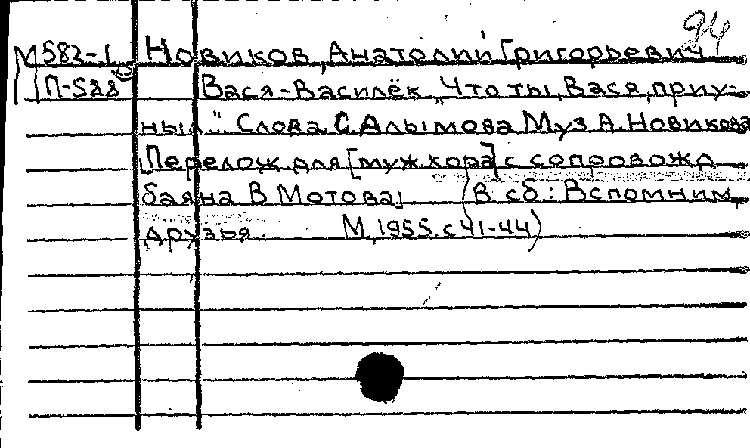 94
М582-1 Новиков, Анатолий Григорьевич
П-588 Вася-Василёк „Что ты, Вася, приу-
ныл..." Слова С.Алымова Муз А. Новикова
Перелож для [муж.хора] с сопровожд
баяна В Мотова; (В сб: Вспомним,
друзья. М, 1955. с 41-44)